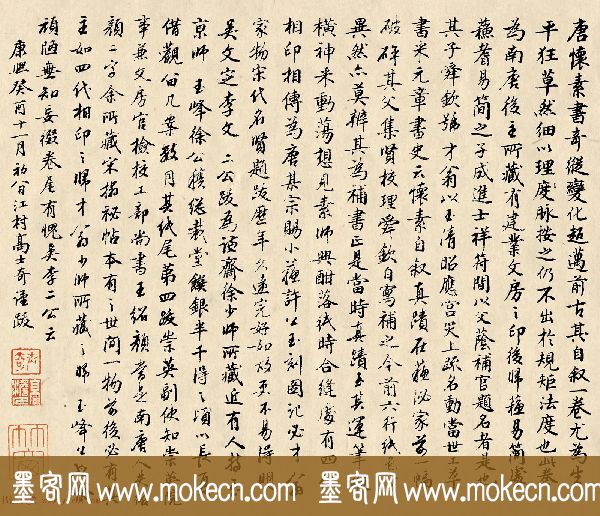 唐懷素書奇縱變化超邁前古其自叙一卷尤為生
平狂草然細以理度脉按之仍不出於規矩法度也此卷
為南唐後主所藏有建業文房之印後歸蘇易簡
蘇耆易簡之子咸進士祥符間以父蔭補官題名者是也
其子舜欽號才翁以玉清昭應宮災上疏名動當世
書米元章書史云懷素自叙真蹟在蘇泌家前一幅
破碎其父集賢校理舜欽自寫補之今前六行紙
異然亦莫辨其為補書正是當時真蹟其運筆
橫神采動蕩想見素師興酣落紙時合縫處有四
相印相傳為唐其宗賜小蘇許公玉刻圖記必才翁
家物宋代名賢題跋歷年久遠完好如故更不易得明
吳文定李文二公跋為謙齋徐少師所藏近有人持
京師玉峰徐公積總裁堂饌銀半千得之頃以長
借觀留几案數月其紙尾第四跋崇英副使知崇英院
事兼文房官檢校工部尚書王紹顏嘗是南唐人
顏二字余所藏宋搨秘帖本有之世間一物前後必有
主如四代相印之歸才翁少師所藏之歸玉峰
頑陋無知妄綴卷尾有愧吳李二公云
康熙癸酉十一月初八日江村高士奇謹跋
墨客网 www.mokecn.com 墨客网 www.mokecn.com